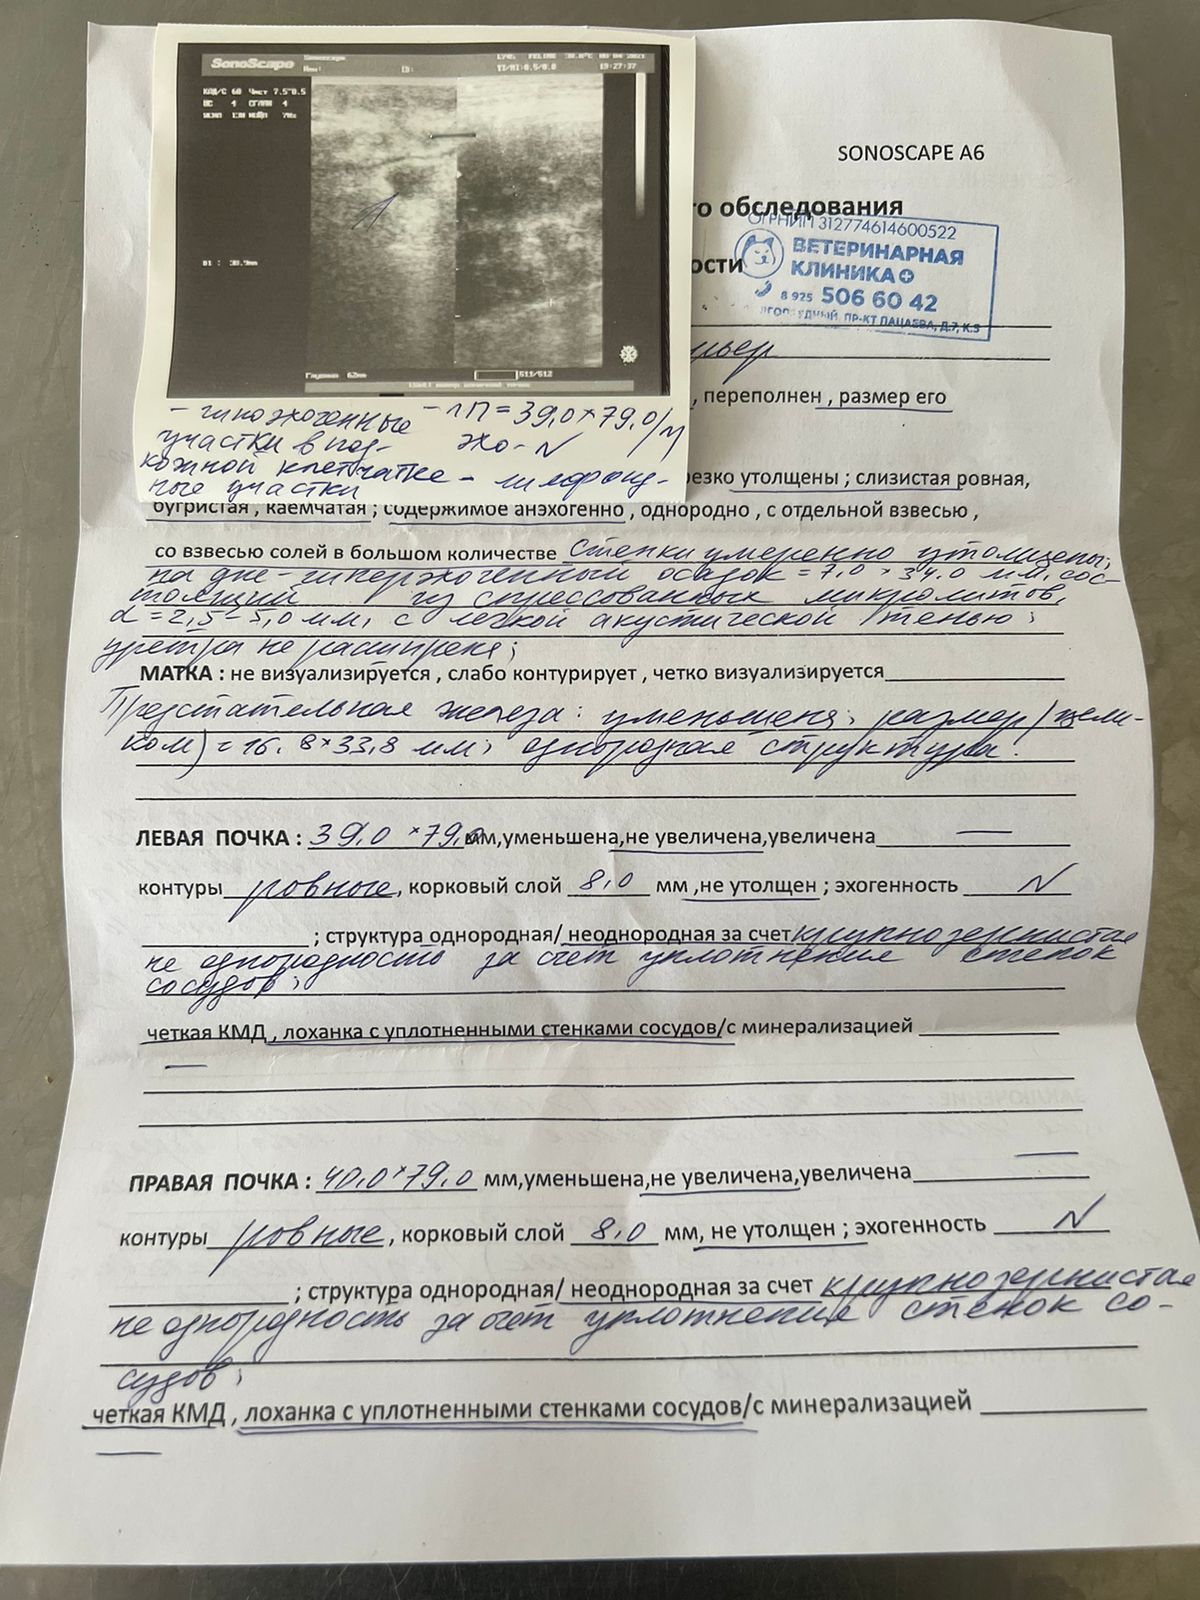 SonoScape
Sonoscape
Имя:
ID:
19:27:37
7.5
С 60 Част
4
4
Глубина 62мм
511/512
SONOSCAPE A6
го обследования
ОГРНИП 312774614600522
ости
ВЕТЕРИНАРНАЯ
КЛИНИКА
8 925 506 60 42
ПР-КТ ПАЦАЕВА, Д.7, К.3
рьер
, переполнен , размер его
- гипоэхогенные - ЛП = 39,0 × 79,0
участки в под- эхо - N
кожной клетчатке - лимфоид-
ные участки
резко утолщены ; слизистая ровная,
бугристая , каемчатая ; содержимое анэхогенно , однородно , с отдельной взвесью ,
со взвесью солей в большом количестве стенки умеренно утолщены;
на дне - гиперэхогенный осадок = 7,0 × 34,0 мм, сос-
тоящий из спрессованных микролитов,
d = 2,5 - 3,0 мм, с легкой акустической тенью;
уретра не расширена;
МАТКА : не визуализируется , слабо контурирует , четко визуализируется
Предстательная железа: уменьшена; размер (цели-
ком) = 16,8 × 33,8 мм; однородная структура.
ЛЕВАЯ ПОЧКА : 39,0 × 79,0 мм,уменьшена,не увеличена,увеличена —
контуры ровные , корковый слой 8,0 мм ,не утолщен ; эхогенность N
; структура однородная/ неоднородная за счет крупнозернистая
неоднородность за счет уплотнения стенок
сосудов;
четкая КМД , лоханка с уплотненными стенками сосудов/с минерализацией
—
ПРАВАЯ ПОЧКА : 40,0 × 79,0 мм,уменьшена,не увеличена,увеличена —
контуры ровные , корковый слой 8,0 мм, не утолщен ; эхогенность N
; структура однородная/ неоднородная за счет крупнозернистая
неоднородность за счет уплотнения стенок со-
судов;
четкая КМД , лоханка с уплотненными стенками сосудов/с минерализацией
—